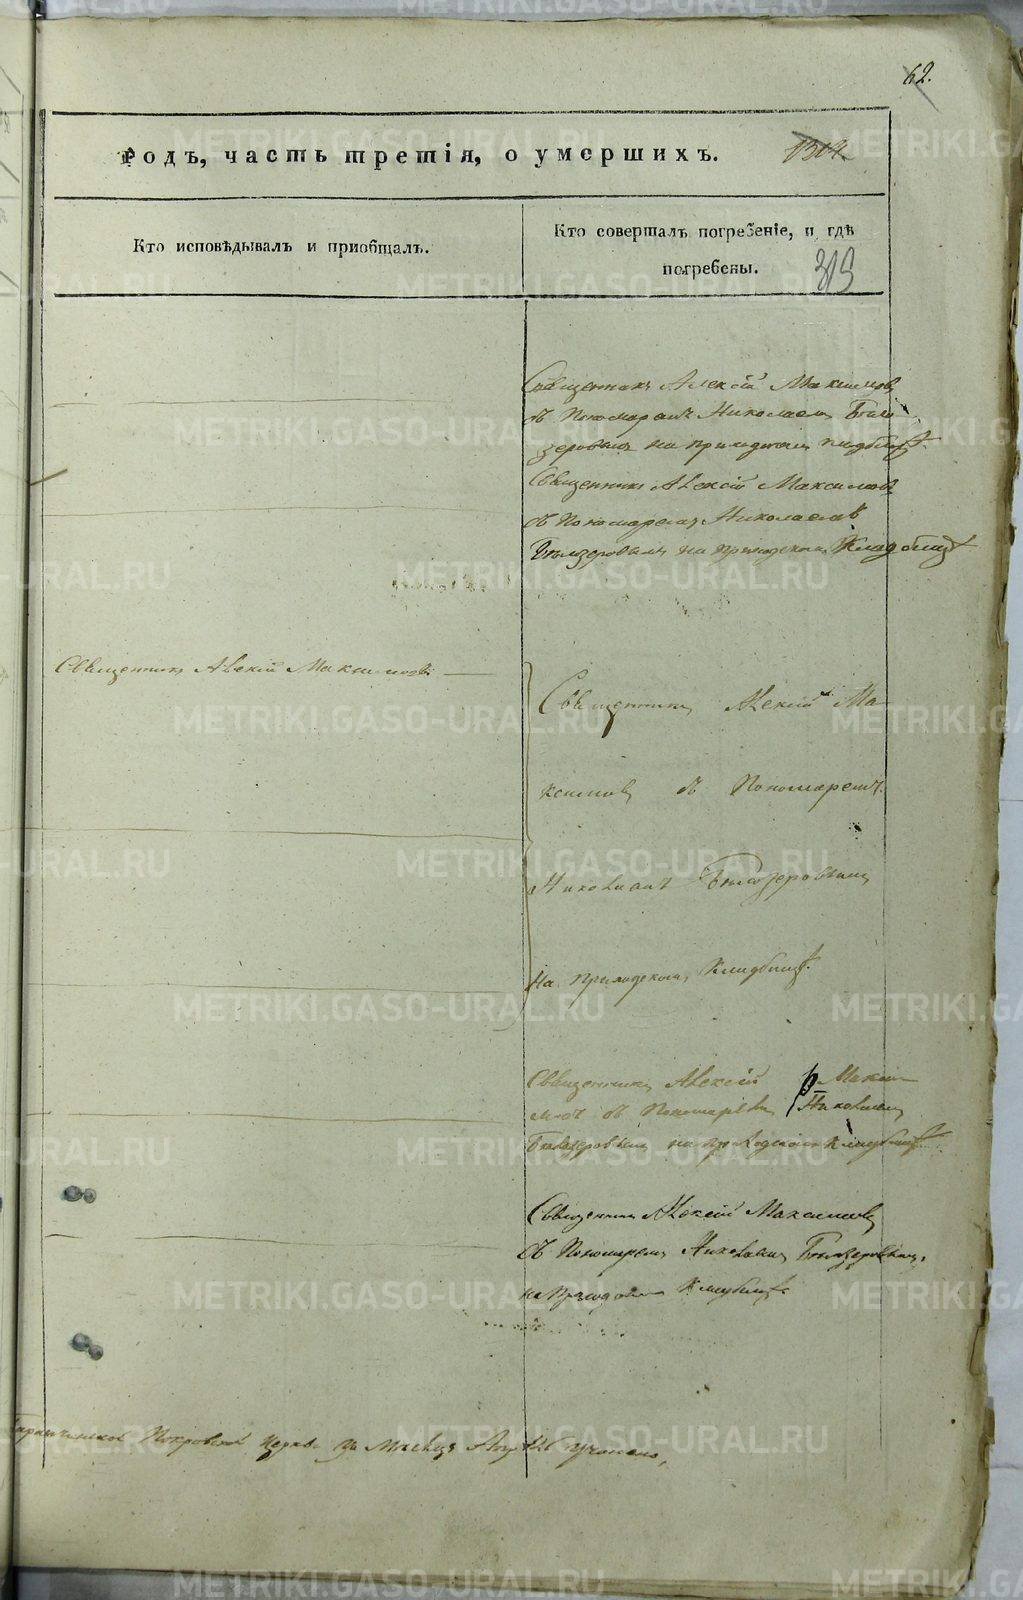 62.
годъ, часть третія, о умершихъ.
Кто исповѣдывалъ и пріобщалъ.
Кто совершалъ погребеніе, и гдѣ
погребены.
319
Священникъ Алексій Максимовъ
съ Пономаремъ Николаемъ Бѣло
зеровымъ на приходскомъ кладбищѣ
Священникъ Алексій Максимовъ
съ Пономаремъ Николаемъ
Бѣлозеровымъ на приходскомъ Кладбищѣ
Священникъ Алексій Максимовъ
Священникъ Алексій Ма
ксимовъ съ Пономаремъ
Николаемъ Бѣлозеровымъ
На приходскомъ Кладбищѣ.
Священникъ Алексій Макси
мовъ съ Пономаремъ Николаемъ
Бѣлозеровымъ на приходскомъ кладбищѣ
Священникъ Алексій Максимовъ
съ Пономаремъ Николаемъ Бѣлозеровымъ
на Приходскомъ Кладбищѣ
Покровской церкви за Мѣсяцъ
METRIKI.GASO-URAL.RU